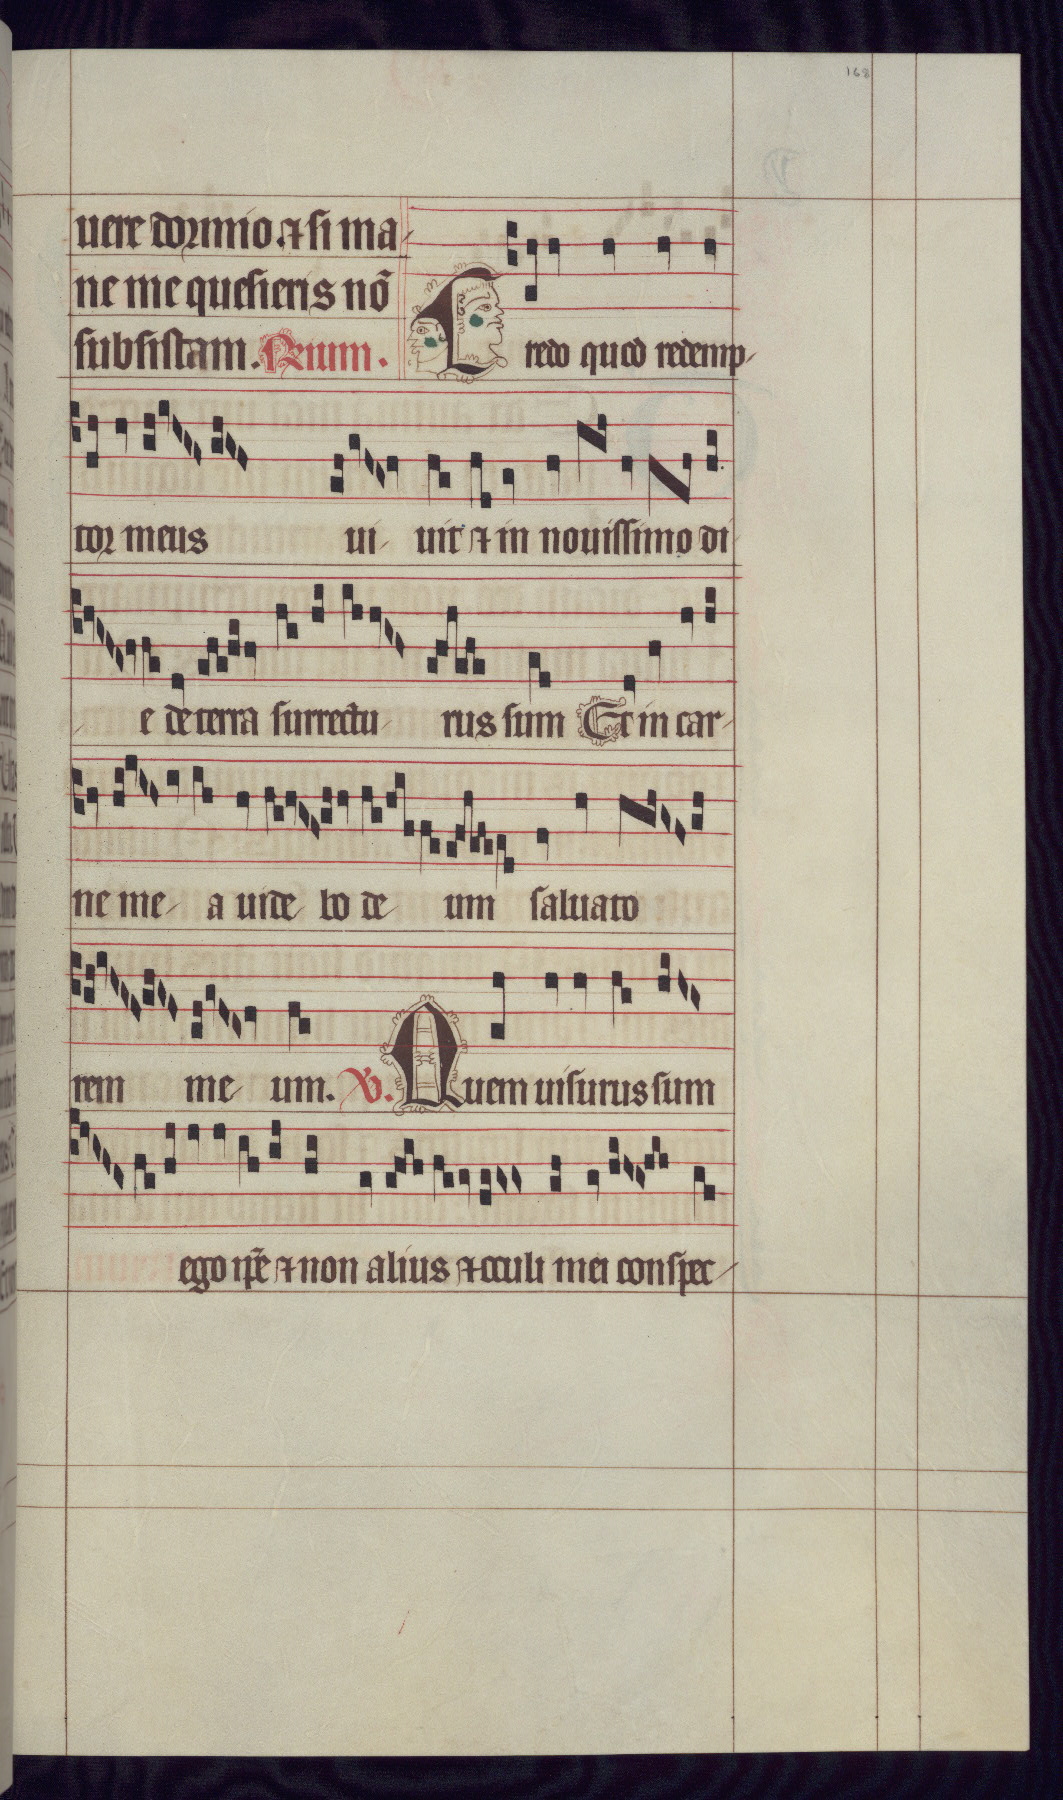 168
uere dormio ⁊ si ma-
ne me quesieris nō
subsistam. R̃sium.
Credo quod redemp-
tor meus ui- uit ⁊ in nouissimo di
- e de terra surrectu- rus sum Et in car-
ne me- a uide- bo de- um saluato
rem me- um. V. Quem uisurus sum
ego ip̄e ⁊ non alius ⁊ oculi mei conspec-